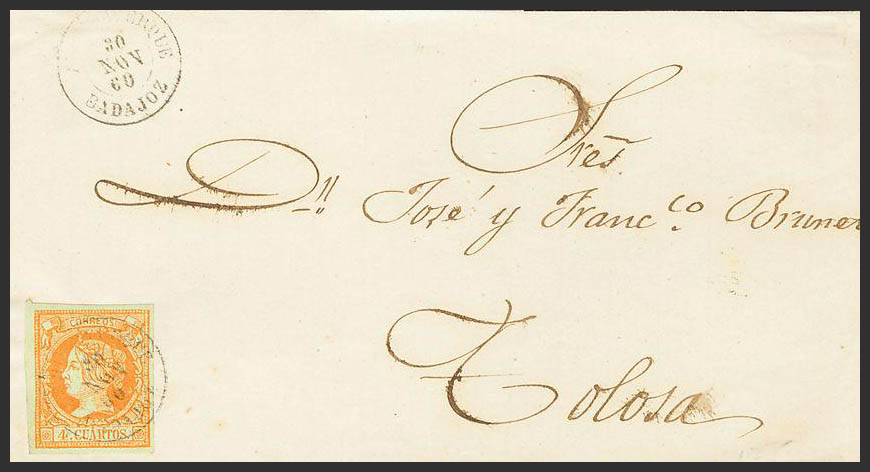 30
NOV
60
BADAJOZ
Sres.
Dn José y Franc.co Brunet
Tolosa
CORREOS
4 CUARTOS